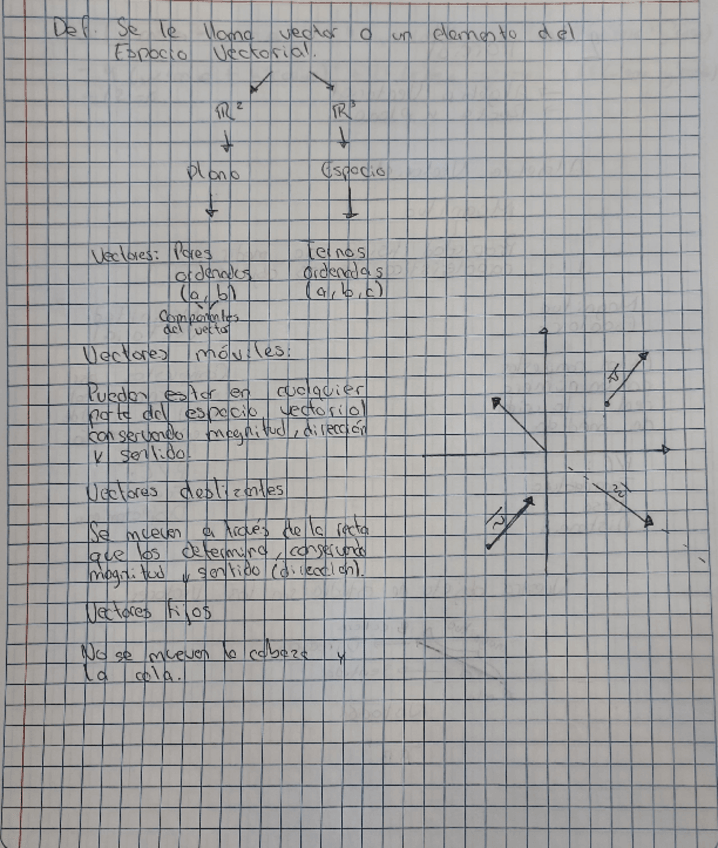 Def. Se le llama vector a un elemento del
Espacio Vectorial.
ℝ² ℝ³
Plano Espacio
Vectores: Pares Ternas
ordenados ordenadas
(a, b) (a, b, c)
Componentes
del vector
Vectores móviles:
Pueden estar en cualquier
parte del espacio vectorial
conservando magnitud, dirección
y sentido.
Vectores deslizantes
Se mueven a través de la recta
que los determina, conservando
magnitud y sentido (dirección).
Vectores Fijos
No se mueven la cabeza y
la cola.